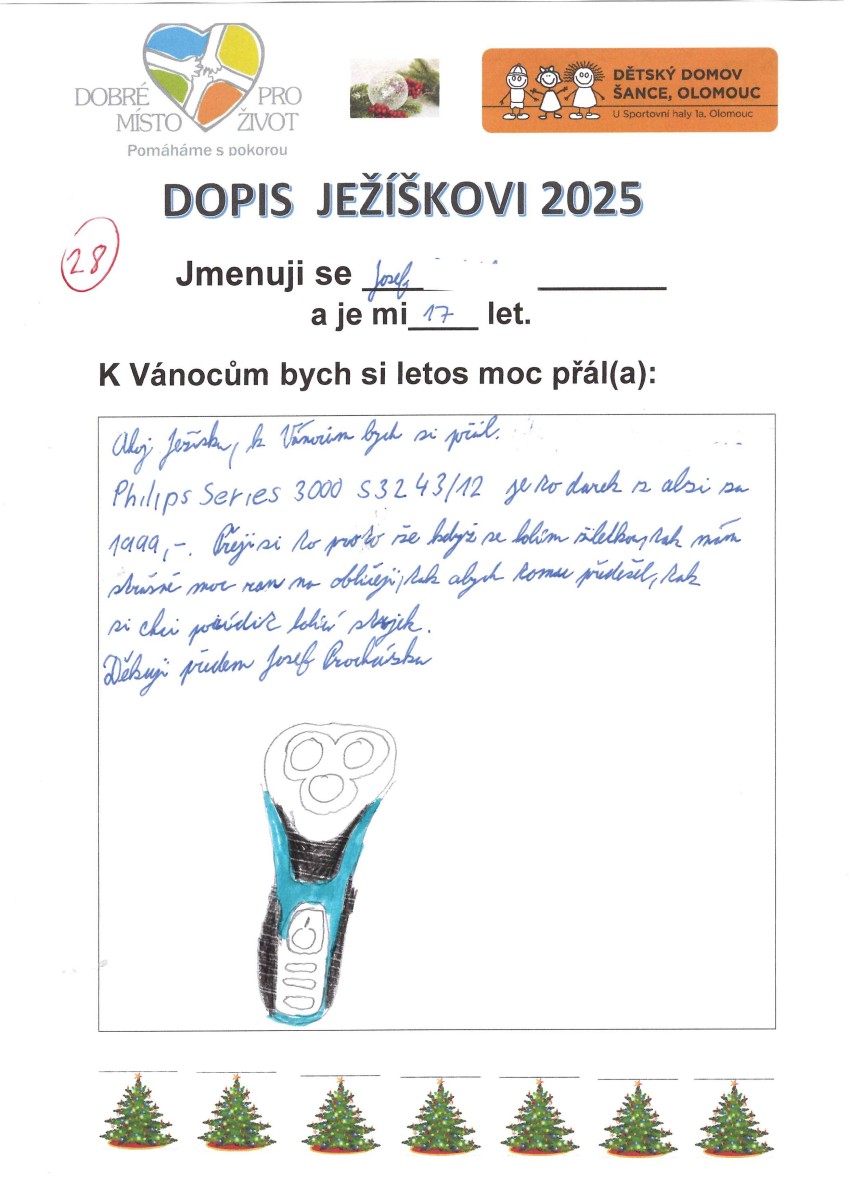 DOBRÉ PRO
MÍSTO ŽIVOT
Pomáháme s pokorou
DĚTSKÝ DOMOV
ŠANCE, OLOMOUC
U Sportovní haly 1a, Olomouc
DOPIS JEŽÍŠKOVI 2025
28
Jmenuji se Josef
a je mi 17 let.
K Vánocům bych si letos moc přál(a):
Ahoj Ježíšku, k Vánocům bych si přál.
Philips Series 3000 S3243/12 je to darek z alzi za
1999,-. Přeji si to proto že když se holím žiletkou, tak mám
strašně moc ran na obličeji, tak abych tomu předešel, tak
si chci pořídit holící strojek.
Děkuji předem Josef Procházka